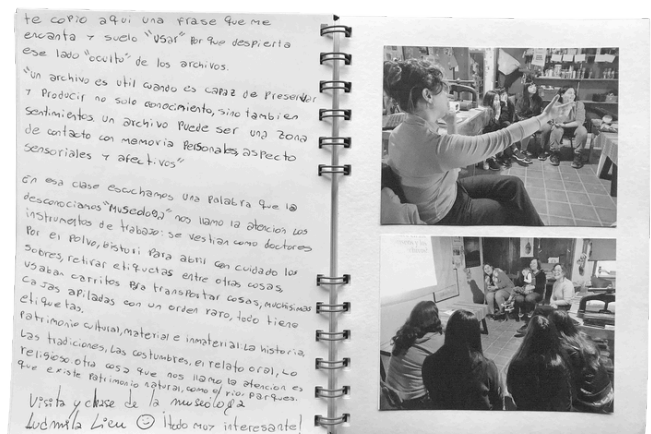 te copio aquí una frase que me
encanta y suelo "usar" porque despierta
ese lado "oculto" de los archivos.
"Un archivo es util cuando es capaz de preservar
y producir no solo conocimiento, sino tambien
sentimientos. un archivo puede ser una zona
de contacto con memoria personales, aspecto
sensoriales y afectivos"
En esa clase escuchamos una palabra que la
desconociamos "Museóloga" nos llamo la atencion los
instrumentos de trabajo: se vestian como doctores
por el polvo, bisturi para abrir con cuidado los
sobres, retirar etiquetas entre otras cosas,
usaban carritos para transportar cosas, muchisimas
cajas apiladas con un orden raro, todo tiene
etiquetas.
Patrimonio cultural, material e inmaterial La historia
Las tradiciones, las costumbres, el relato oral, Lo
religioso otra cosa que nos llamo la atencion es
que existe patrimonio natural, como el rio, parques.
Visita y clase de la museóloga
Ludmila Lieu ☺ ¡todo muy interesante!